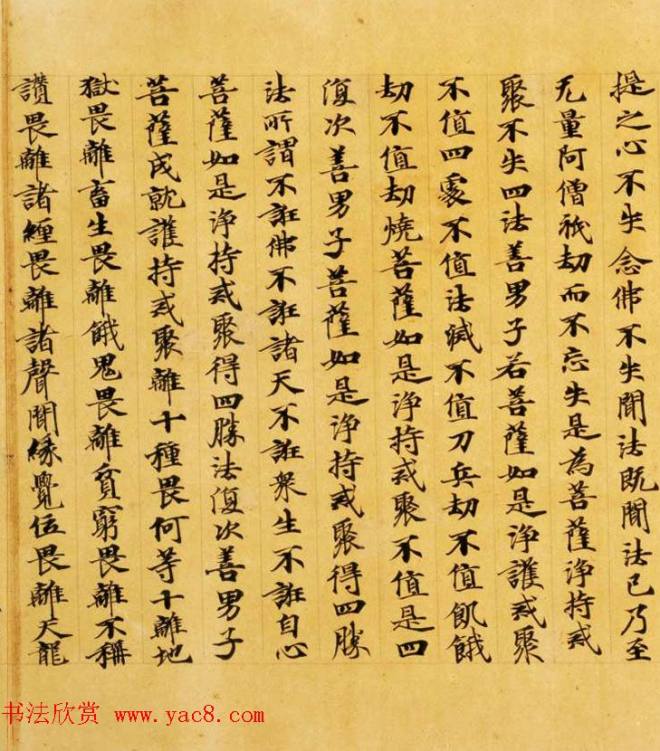 提之心不失念佛不失聞法既聞法已乃至
无量阿僧祇劫而不忘失是為菩薩淨持戒
聚不失四法善男子若菩薩如是淨護戒聚
不值四處不值法滅不值刀兵劫不值飢餓
劫不值劫燒菩薩如是淨持戒聚不值是四
復次善男子菩薩如是淨持戒聚得四勝
法所謂不誑佛不誑諸天不誑衆生不誑自心
菩薩如是淨持戒聚得四勝法復次善男子
菩薩成就護持戒聚離十種畏何等十離地
獄畏離畜生畏離餓鬼畏離貧窮畏離不稱
讚畏離諸纏畏離諸聲聞緣覺位畏離天龍
书法欣赏 www.yac8.com